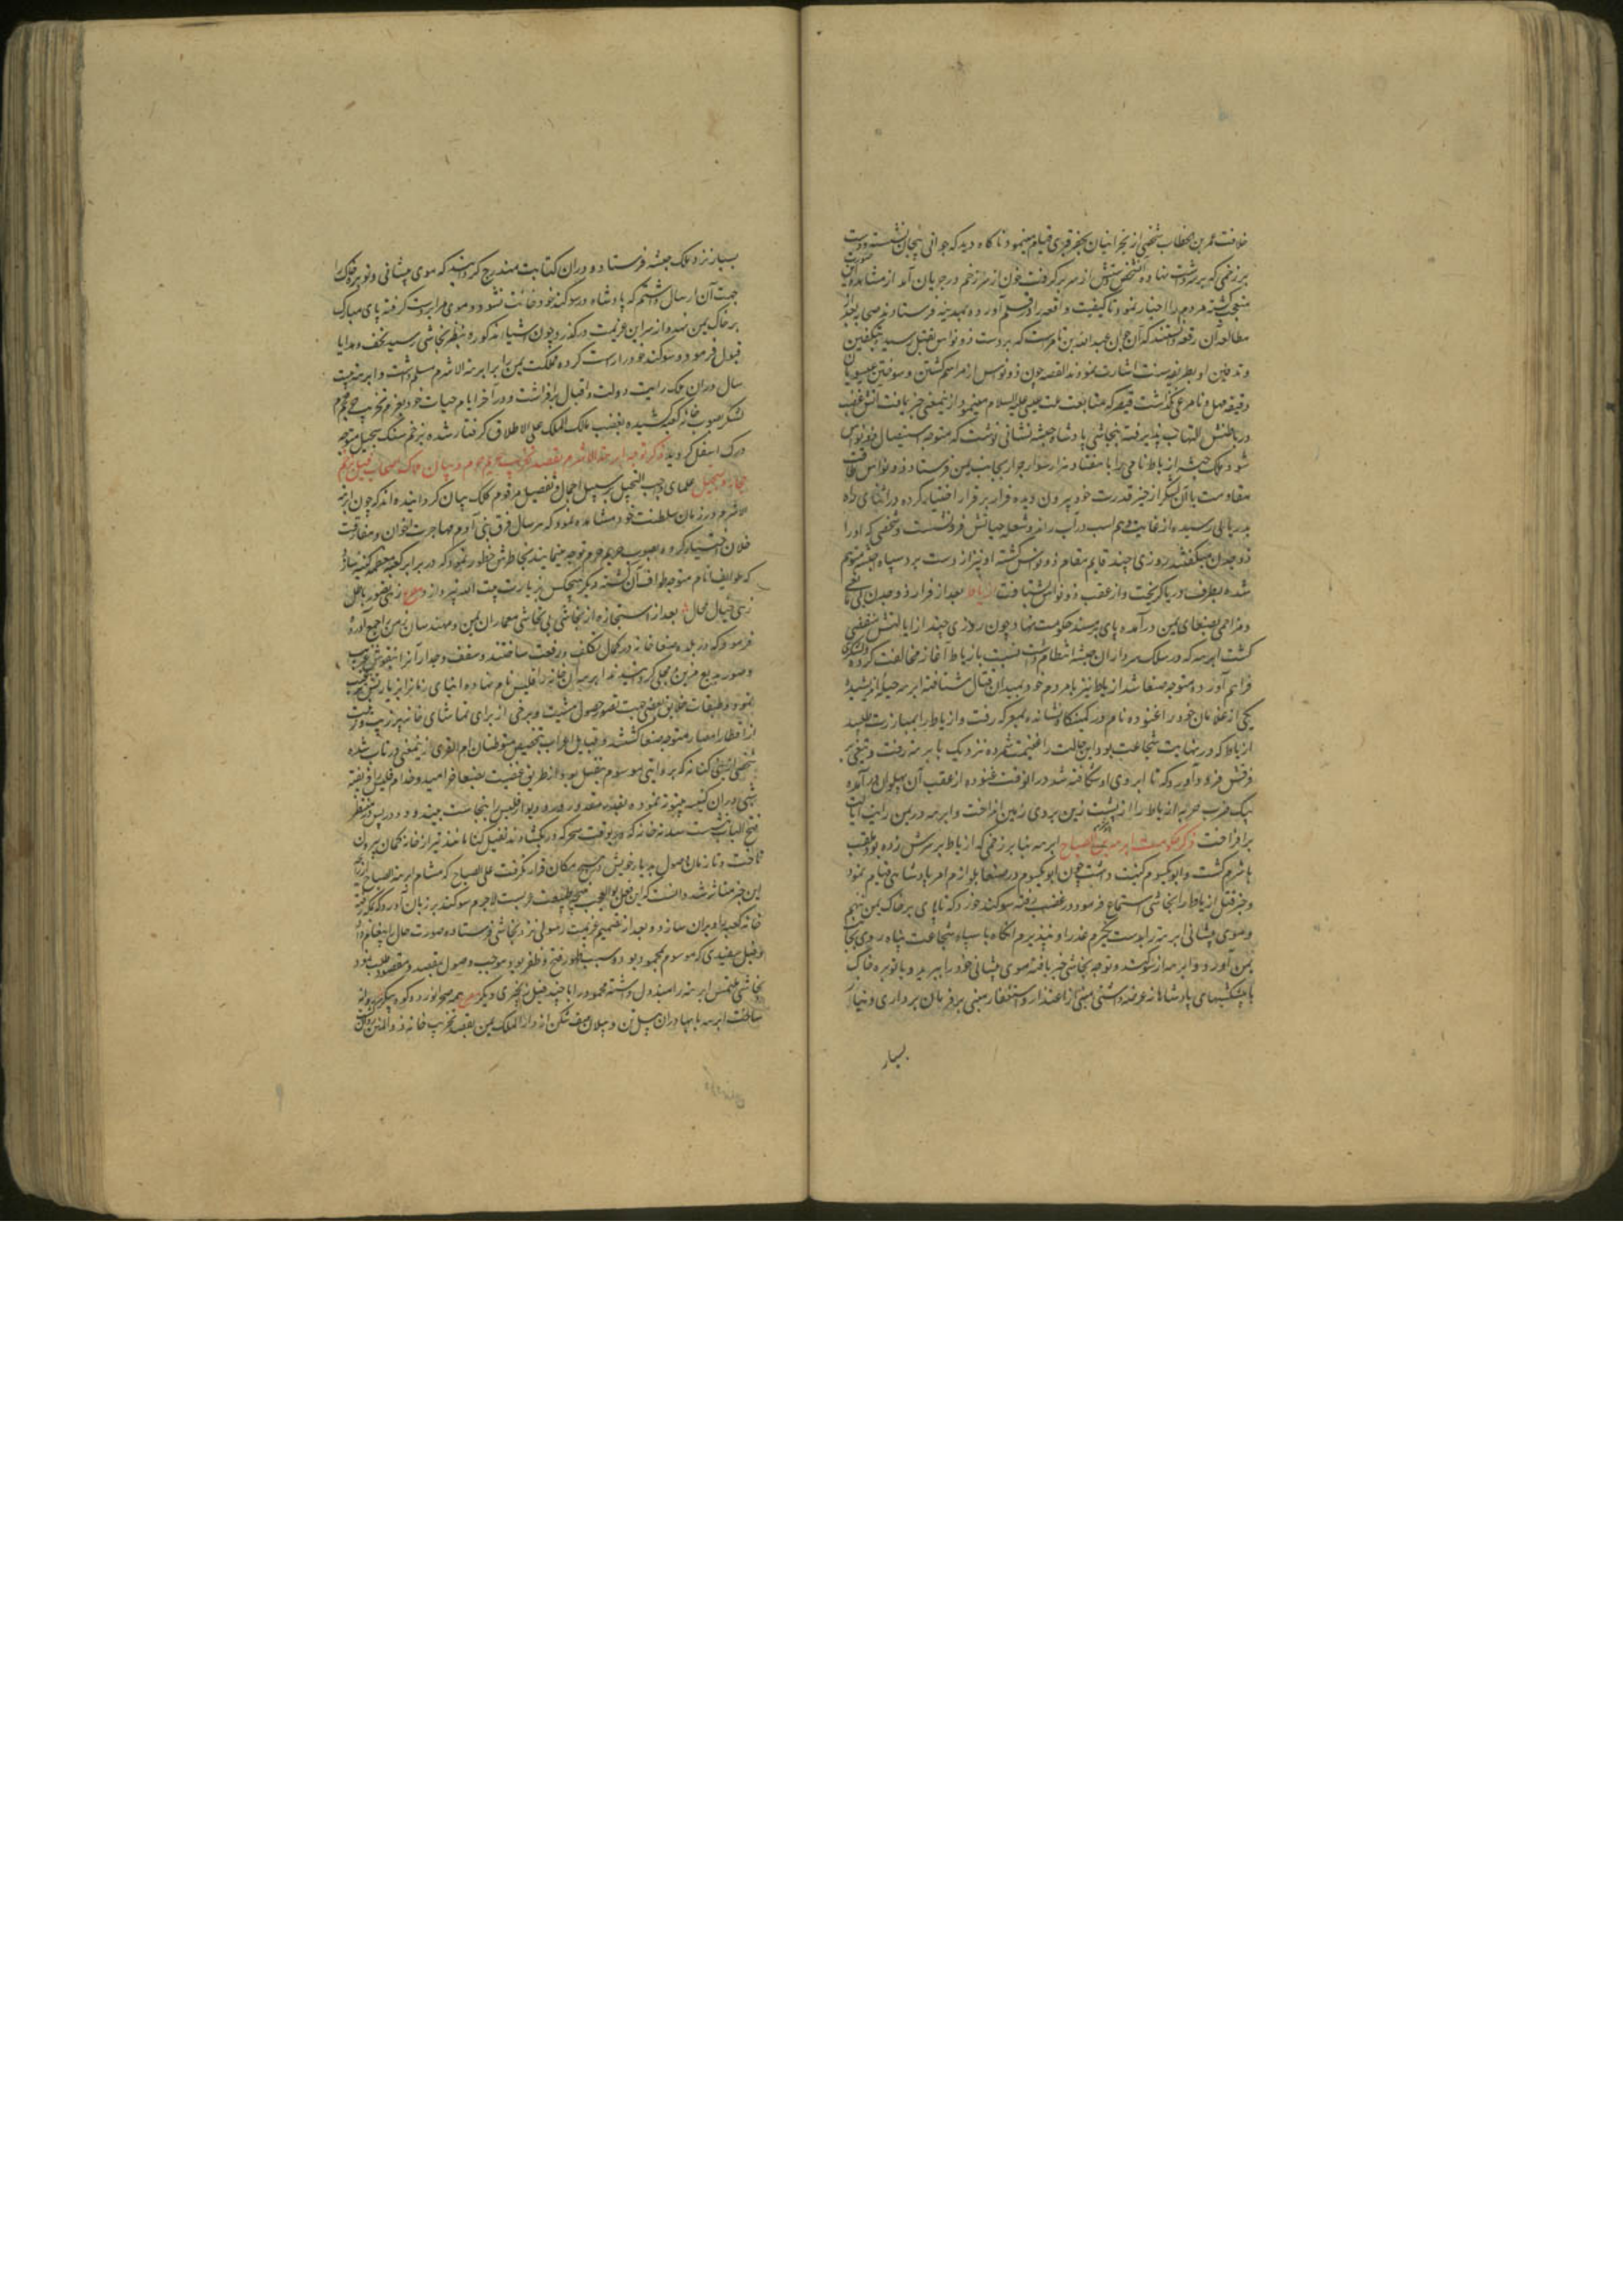 خلافت عمر بن الخطاب شخصی از نجرانیان بحفر قبری قیام مینمود ناکاه دید که جوانی بیجان نشسته و دست
بر زخمی که بر سر داشت نهاده آن شخص دستش از سر بر کرفت خون از سر زخم در جریان آمد از مشاهده این صورت
متعجب کشته مردم را اخبار نمود تا کیفیت واقعه را در قلم آورده بمدینه فرستادند و صحابه بعد از
مطالعه آن رقعه دانستند که آن جوان عبد الله بن تامرست که بر دست ذو نواس بقتل رسیده بتکفین
و تدفین او بطریقه سنت اشارت نمودند القصه چون ذو نواس از مراسم کشتن و سوختن عیسویان
دقیقه مهمل و نامرعی نکذاشت قیصر که متابعت ملت عیسی علیه السلام مینمود از اینمعنی خبر یافت آتش غضب
در باطنش التهاب پذیرفته بنجاشی پادشاه حبشه نشانی نوشت که متوجه استیصال ذو نواس
شود ملک حبشه ازیاط نامی را با هفتاد هزار سوار جرار بجانب یمن فرستاد ذو نواس طاقت
مقاومت با آن لشکر از حیز قدرت خود بیرون دیده فرار بر قرار اختیار کرده در اثنای راه
بدریایی رسیده از غایت وهم اسب در آب راند و شعله حیاتش فرو نشست و شخصی که او را
ذو جدن میکفتند روزی چند قایم مقام ذو نواس کشته او نیز از دست برد سپاه حبشه متوهم
شده بطرف دریا کریخت و از عقب ذو نواس شتافت ازیاط بعد از فرار ذو جدن بی مانعی
و مزاحمی بصنعای یمن درآمده پای بر مسند حکومت نهاد و چون روزی چند از ایالتش منقضی
کشت ابرهه که در سلک سرداران حبشه انتظام داشت نسبت بازیاط آغاز مخالفت کرده و لشکری
فراهم آورده متوجه صنعا شد ازیاط نیز با مردم خود بمیدان قتال شتافته ابرهه حیله اندیشیده
یکی از غلامان خود را غنوده نام در کمینکاه نشانده بمعرکه رفت و ازیاط را بمبارزت طلبید
ازیاط که در نهایت شجاعت بود این حالت را غنیمت شمرده نزدیک بابرهه رفت و تیغی بر
فرقش فرود آورد که تا ابروی او شکافته شد در آنوقت غنوده از عقب آن پهلوان درآمده
بیک ضرب حربه ازیاط را از پشت زین بر روی زمین انداخت و ابرهه در یمن رایت ایالت
برافراخت ذکر حکومت ابرهه بن الصباح ابرهه بنا بر زخمی که ازیاط بر سرش زده بود ملقب
باشرم کشت و ابو یکسوم کنیت داشت چون ابو یکسوم در صنعا بلوازم امر پادشاهی قیام نمود
و خبر قتل ازیاط را نجاشی استماع فرمود در غضب رفته سوکند خورد که تا پای بر خاک یمن ننهم
و موی پیشانی ابرهه را بدست نکیرم عذر او نپذیرم آنکاه با سپاه شجاعت پناه روی بجانب
یمن آورد و ابرهه از سوکند و توجه نجاشی خبر یافته موی پیشانی خود را ببرید و با توبره خاک
با پیشکشهای پادشاهانه و عرضه داشتی مبنی از اعتذار و استغفار مبنی بر فرمان برداری و نیاز
بسیار
بسیار نزد ملک حبشه فرستاد و در ان کتابت مندرج کردانید که موی پیشانی و توبره خاک را
جهت آن ارسال داشتم که پادشاه در سوکند خود حانث نشود و موی مرا بدست کرفته پای مبارک
بر خاک یمن نهد و از سر این عزیمت درکذرد چون اشیاء مذکوره بنظر نجاشی رسید تحف و هدایا
قبول فرمود و سوکند خود راست کرده مملکت یمن را بر ابرهة الاشرم مسلم داشت و ابرهه بیست
سال در ان ملک رایت دولت و اقبال برافراشت و در آخر ایام حیات خود بعزم تخریب حرم محترم
لشکر بصوب خانه کعبه کشیده بغضب مالک الملک علی الاطلاق کرفتار شده بزخم سنک سجیل متوجه
درک اسفل کردید ذکر توجه ابرهة الاشرم بقصد تخریب حریم حرم و بیان هلاک اصحاب فیل بزخم
حجاره سجیل علمای واجب التبجیل بر سبیل اجمال و تفصیل مرقوم کلک بیان کردانیده اند که چون ابرهة
الاشرم در زمان سلطنت خود مشاهده نمود که هر سال فرق بنی آدم مهاجرت اخوان و مفارقت
خلان اختیار کرده بصوب حریم حرم توجه مینمایند بخاطرش خطور نمود که در برابر کعبه معظمه کنیسه بسازد
که طوایف انام متوجه طواف آن کشته دیکر هیچکس بزیارت بیت الله نپردازد مصرع زهی تصور باطل
زهی خیال محال بعد از استجازه از نجاشی بی تحاشی معماران یمن و مهندسان زمن را جمع آورده
فرمود که در بلده صنعا خانه در کمال تکلف و رفعت ساختند و سقف و جدار آنرا بنقوش غریب
و صور بدیع مزین و محلی کردانیدند ابرهه آن خانه را قلیس نام نهاده ابنای زمان را بزیارتش ترغیب
نمود و طبقات خلایق بعضی جهت تصور حصول مثوبت و برخی از برای تماشای خانه پر زیب و زینت
از اقطار امصار متوجه صنعا کشتند و قبایل اعراب بتخصیص متوطنان ام القری از اینمعنی در تاب شده
شخصی از بنی کنانه که بروایتی موسوم بنفیل بود از طریق عصبیت بصنعا خرامید و خدام قلیس را فریفته
شبی در ان کنیسه بیتوته نمود و بقدر مقدور در و دیوار قلیس را بنجاست بیند و در پس در منتظر
فتح الباب نشست سدنه خانه که بوقت سحرکه در بکشادند نفیل کنانی مانند تیر از خانه کمان بیرون
تاخت و تا زمان وصول بدیار خویش در هیچ مکان قرار نکرفت علی الصباح که مشام ابرهة الصباح از رایحه
این خبر متاثر شد دانست که این فعل بو العجب نتیجه طبیعت عربست لاجرم سوکند بر زبان آورد که مکه رفته
خانه کعبه را ویران سازد و بعد از تصمیم عزیمت رسولی نزد نجاشی فرستاده صورت حال را پیغام داد
و فیل سفیدی که موسوم بمحمود بود و سبب ظهور فتح و ظفر بود و موجب وصول بمقصد و مقصود طلب نمود
نجاشی ملتمس ابرهه را مبذول داشته محمود را با چند فیل زنجیری دیکر مصرع همه صحرا نورد و کوه پیکر روانه
ساخت ابرهه با بهادران پیل تن و پیلان صف شکن از دار الملک یمن بقصد تخریب خانه ذو المنن روان